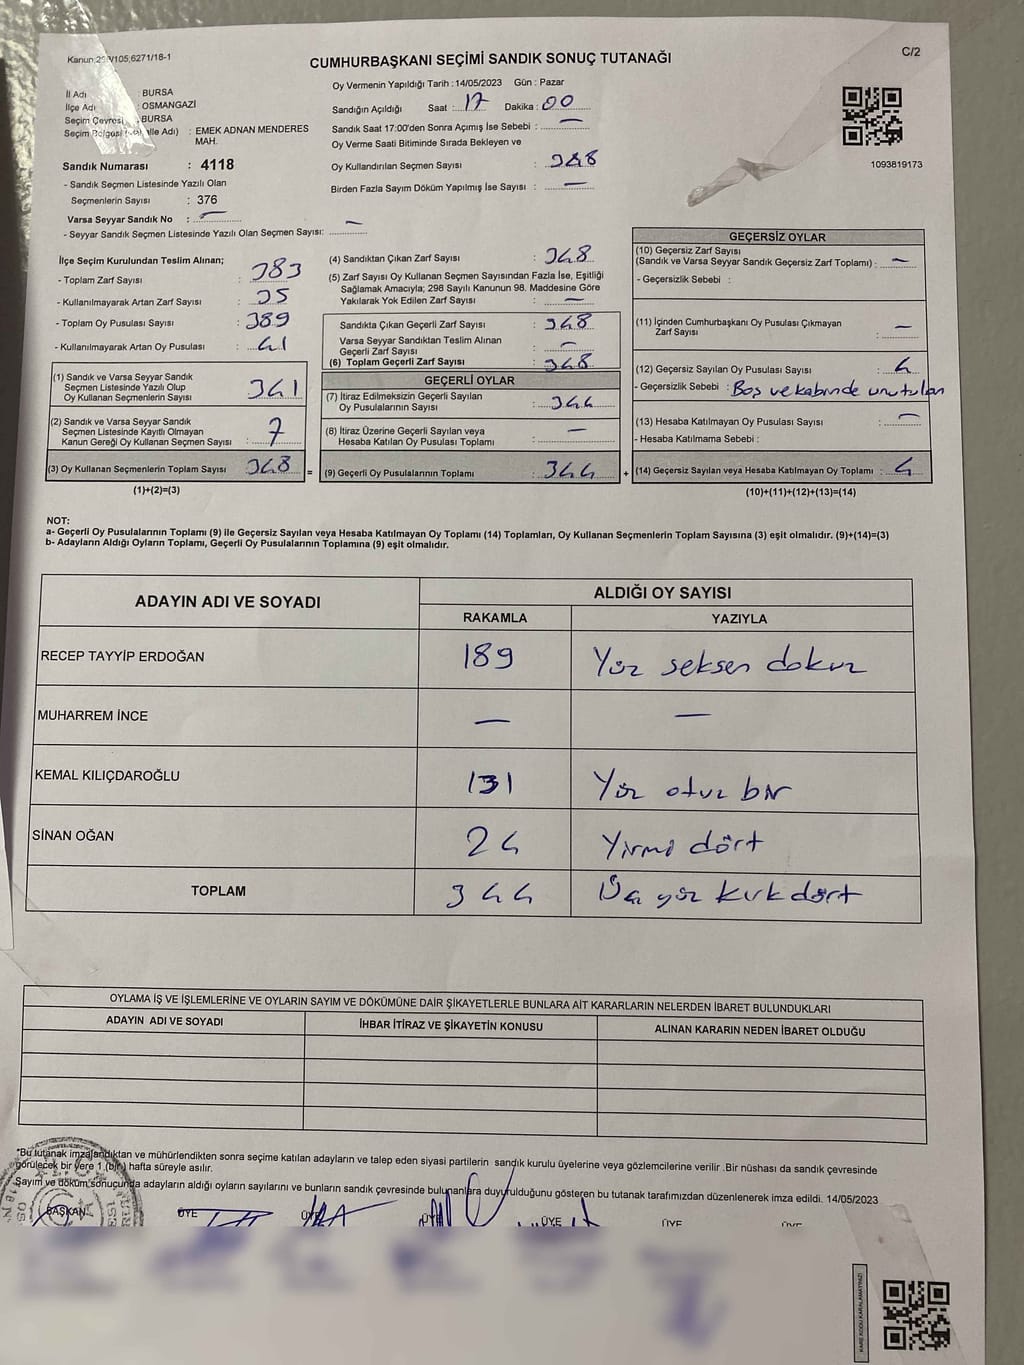 Kanun:298/105;6271/18-1
CUMHURBAŞKANI SEÇİMİ SANDIK SONUÇ TUTANAĞI
C/2
İl Adı : BURSA
İlçe Adı : OSMANGAZİ
Seçim Çevresi : BURSA
Seçim Bölgesi (Mahalle Adı) : EMEK ADNAN MENDERES MAH.
Sandık Numarası : 4118
- Sandık Seçmen Listesinde Yazılı Olan
Seçmenlerin Sayısı : 376
Varsa Seyyar Sandık No : —
- Seyyar Sandık Seçmen Listesinde Yazılı Olan Seçmen Sayısı: —
Oy Vermenin Yapıldığı Tarih : 14/05/2023 Gün : Pazar
Sandığın Açıldığı Saat : 17 Dakika : 00
Sandık Saat 17:00'den Sonra Açımış İse Sebebi : —
Oy Verme Saati Bitiminde Sırada Bekleyen ve
Oy Kullandırılan Seçmen Sayısı : 348
Birden Fazla Sayım Döküm Yapılmış İse Sayısı : —
1093819173
İlçe Seçim Kurulundan Teslim Alınan;
- Toplam Zarf Sayısı : 383
- Kullanılmayarak Artan Zarf Sayısı : 35
- Toplam Oy Pusulası Sayısı : 389
- Kullanılmayarak Artan Oy Pusulası : 41
(1) Sandık ve Varsa Seyyar Sandık
Seçmen Listesinde Yazılı Olup
Oy Kullanan Seçmenlerin Sayısı 341
(2) Sandık ve Varsa Seyyar Sandık
Seçmen Listesinde Kayıtlı Olmayan
Kanun Gereği Oy Kullanan Seçmen Sayısı : 7
(3) Oy Kullanan Seçmenlerin Toplam Sayısı 348
(1)+(2)=(3)
(4) Sandıktan Çıkan Zarf Sayısı : 348
(5) Zarf Sayısı Oy Kullanan Seçmen Sayısından Fazla İse, Eşitliği
Sağlamak Amacıyla; 298 Sayılı Kanunun 98. Maddesine Göre
Yakılarak Yok Edilen Zarf Sayısı : —
Sandıkta Çıkan Geçerli Zarf Sayısı : 348
Varsa Seyyar Sandıktan Teslim Alınan
Geçerli Zarf Sayısı : —
(6) Toplam Geçerli Zarf Sayısı : 348
GEÇERLİ OYLAR
(7) İtiraz Edilmeksizin Geçerli Sayılan
Oy Pusulalarının Sayısı : 344
(8) İtiraz Üzerine Geçerli Sayılan veya
Hesaba Katılan Oy Pusulası Toplamı : —
= (9) Geçerli Oy Pusulalarının Toplamı : 344 +
GEÇERSİZ OYLAR
(10) Geçersiz Zarf Sayısı
(Sandık ve Varsa Seyyar Sandık Geçersiz Zarf Toplamı) : —
- Geçersizlik Sebebi :
(11) İçinden Cumhurbaşkanı Oy Pusulası Çıkmayan
Zarf Sayısı : —
(12) Geçersiz Sayılan Oy Pusulası Sayısı : 4
- Geçersizlik Sebebi : Boş ve kabinde unutulan
(13) Hesaba Katılmayan Oy Pusulası Sayısı : —
- Hesaba Katılmama Sebebi :
(14) Geçersiz Sayılan veya Hesaba Katılmayan Oy Toplamı : 4
(10)+(11)+(12)+(13)=(14)
NOT:
a- Geçerli Oy Pusulalarının Toplamı (9) ile Geçersiz Sayılan veya Hesaba Katılmayan Oy Toplamı (14) Toplamları, Oy Kullanan Seçmenlerin Toplam Sayısına (3) eşit olmalıdır. (9)+(14)=(3)
b- Adayların Aldığı Oyların Toplamı, Geçerli Oy Pusulalarının Toplamına (9) eşit olmalıdır.
ADAYIN ADI VE SOYADI ALDIĞI OY SAYISI
RAKAMLA YAZIYLA
RECEP TAYYİP ERDOĞAN 189 Yüz seksen dokuz
MUHARREM İNCE — —
KEMAL KILIÇDAROĞLU 131 Yüz otuz bir
SİNAN OĞAN 24 Yirmi dört
TOPLAM 344 Üç yüz kırk dört
OYLAMA İŞ VE İŞLEMLERİNE VE OYLARIN SAYIM VE DÖKÜMÜNE DAİR ŞİKAYETLERLE BUNLARA AİT KARARLARIN NELERDEN İBARET BULUNDUKLARI
ADAYIN ADI VE SOYADI İHBAR İTİRAZ VE ŞİKAYETİN KONUSU ALINAN KARARIN NEDEN İBARET OLDUĞU
*Bu tutanak imzalandıktan ve mühürlendikten sonra seçime katılan adayların ve talep eden siyasi partilerin sandık kurulu üyelerine veya gözlemcilerine verilir .Bir nüshası da sandık çevresinde
görülecek bir yere 1 (bir) hafta süreyle asılır.
Sayım ve döküm sonucunda adayların aldığı oyların sayılarını ve bunların sandık çevresinde bulunanlara duyurulduğunu gösteren bu tutanak tarafımızdan düzenlenerek imza edildi. 14/05/2023
BAŞKAN ÜYE ÜYE ÜYE ÜYE ÜYE ÜYE
KARE KODU KARALAMAYINIZ!